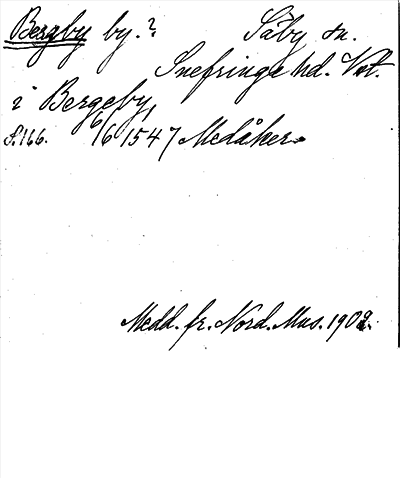 Bergby by.? Säby sn.
Snefringe hd. Vstm.
i Bergeby,
S. 166. 6/6 1547 Medåker.
Medd. fr. Nord. Mus. 1902.